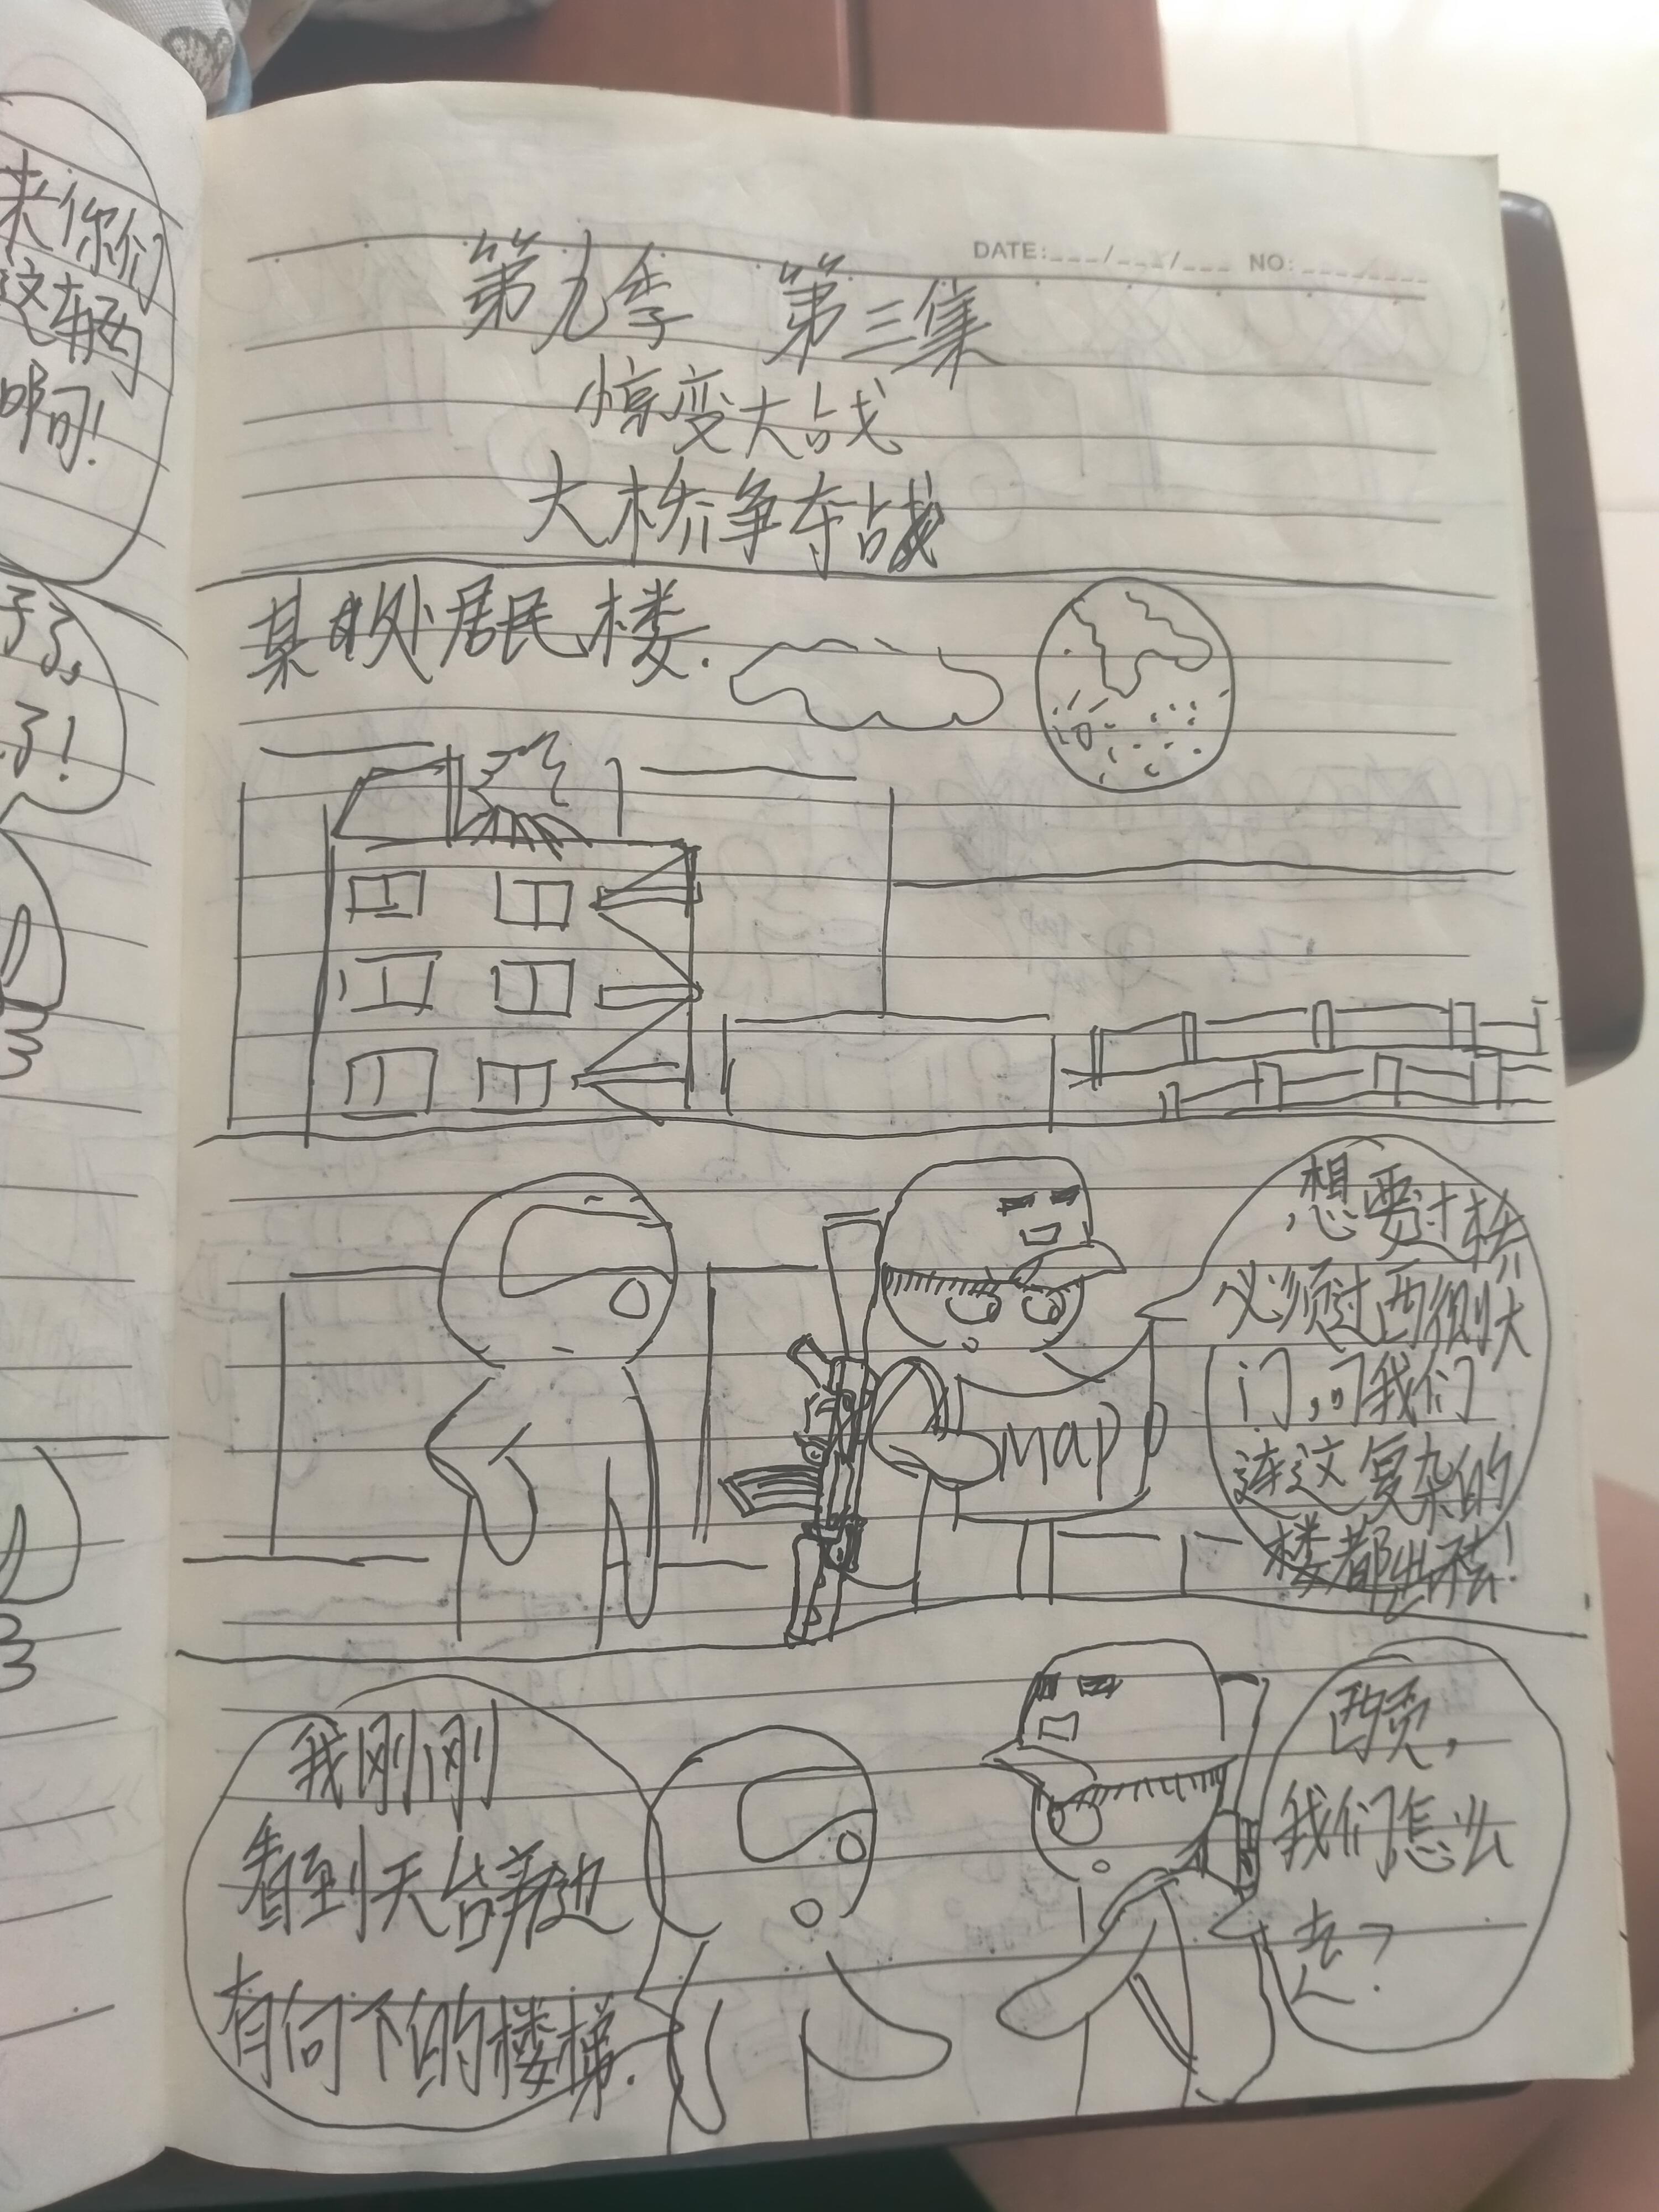 来你们
这车两
啊!
子了,
了!
DATE:___/___/___ NO:________
第九季 第三集
惊变大战
大桥争夺战
某处居民楼.
想要过桥
必须过西侧大
门,可我们
连这复杂的
楼都出不去!
MAP
我刚刚
看到天台旁边
有向下的楼梯.
西贡,
我们怎么
去?